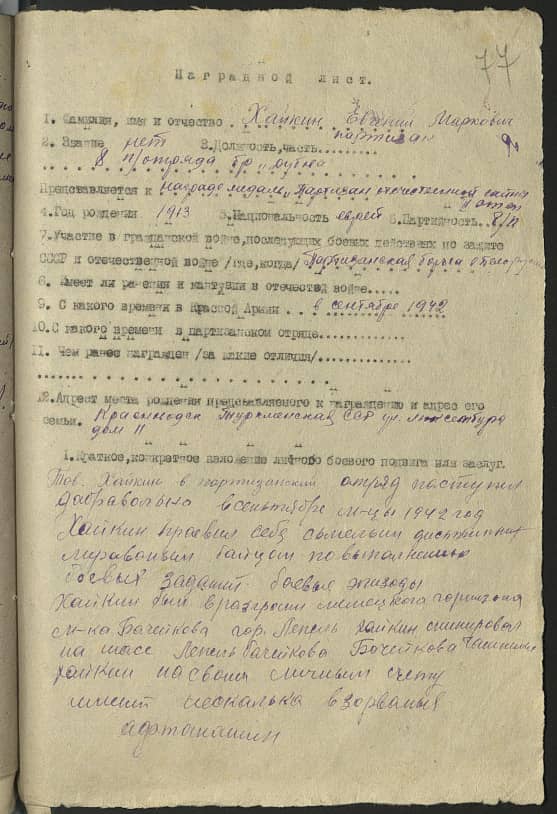 77
Наградной лист.
1. Фамилия, имя и отчество . Хайкин Евгений Маркович
2. Звание нет 3. Должность, часть......... партизан
8 п/отряда бр "Дубова"
Представляется к награде медаль "Партизан отечественной войны" II степ
4. Год рождения 1913 5. Национальность еврей 6. Партийность. б/п
7. Участие в гражданской войне, последующих боевых действиях по защите
СССР и отечественной войне /где, когда/ Партизанская борьба в тылу
8. Имеет ли ранения и контузии в отечестй войне.....
9. С какого времени в Красной Армии . . . в сентябре 1942
10. С какого времени в партизанском отряде.............
11. Чем ранее награжден /за какие отличия/..............
12. Адрест места рождения представляеного к награждению и адрес его
семьи. Красноводск Туркменская ССР ул.
дом 11
1. Краткое, конкретное изложение личного боевого подвига или заслуг.
Тов. Хайкин в партизанский отряд поступил
добравольно в сентябре м-цы 1942 год
Хайкин праевил себя смелым
бойцом по выполнению
боевых заданий боевые эпизоды
Хайкин был в разгроми немецкого горнизона
м-ка Бачейкова гор. Лепель Хайкин
на шасе Лепель Бачейкова Бочейкова Чашники
Хайкин на своим личным счету
имеит несколька взорваных
афтомашин